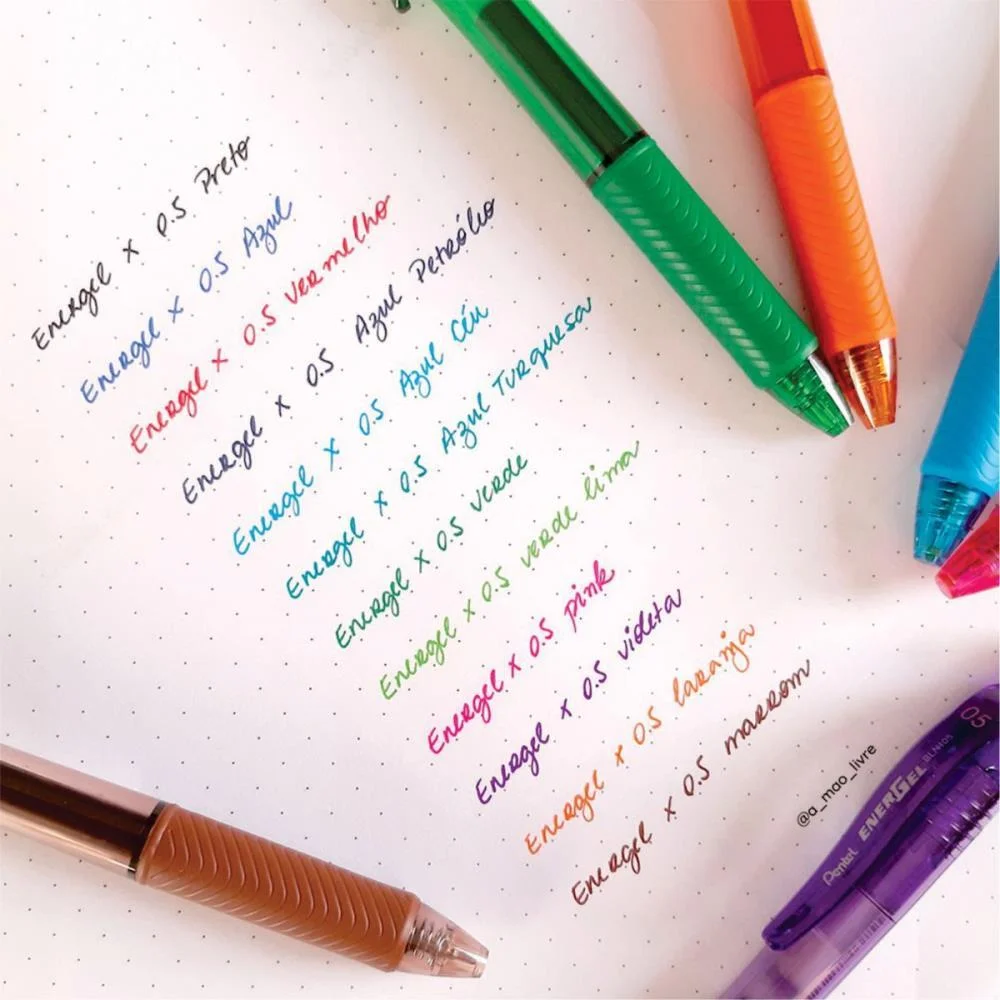 Energel x 0.5 Preto
Energel x 0.5 Azul
Energel x 0.5 Vermelho
Energel x 0.5 Azul Petróleo
Energel x 0.5 Azul Céu
Energel x 0.5 Azul Turquesa
Energel x 0.5 verde
Energel x 0.5 verde lima
Energel x 0.5 pink
Energel x 0.5 violeta
Energel x 0.5 laranja
Energel x 0.5 marrom
@a_mao_livre
Pentel ENERGEL BLN105 05